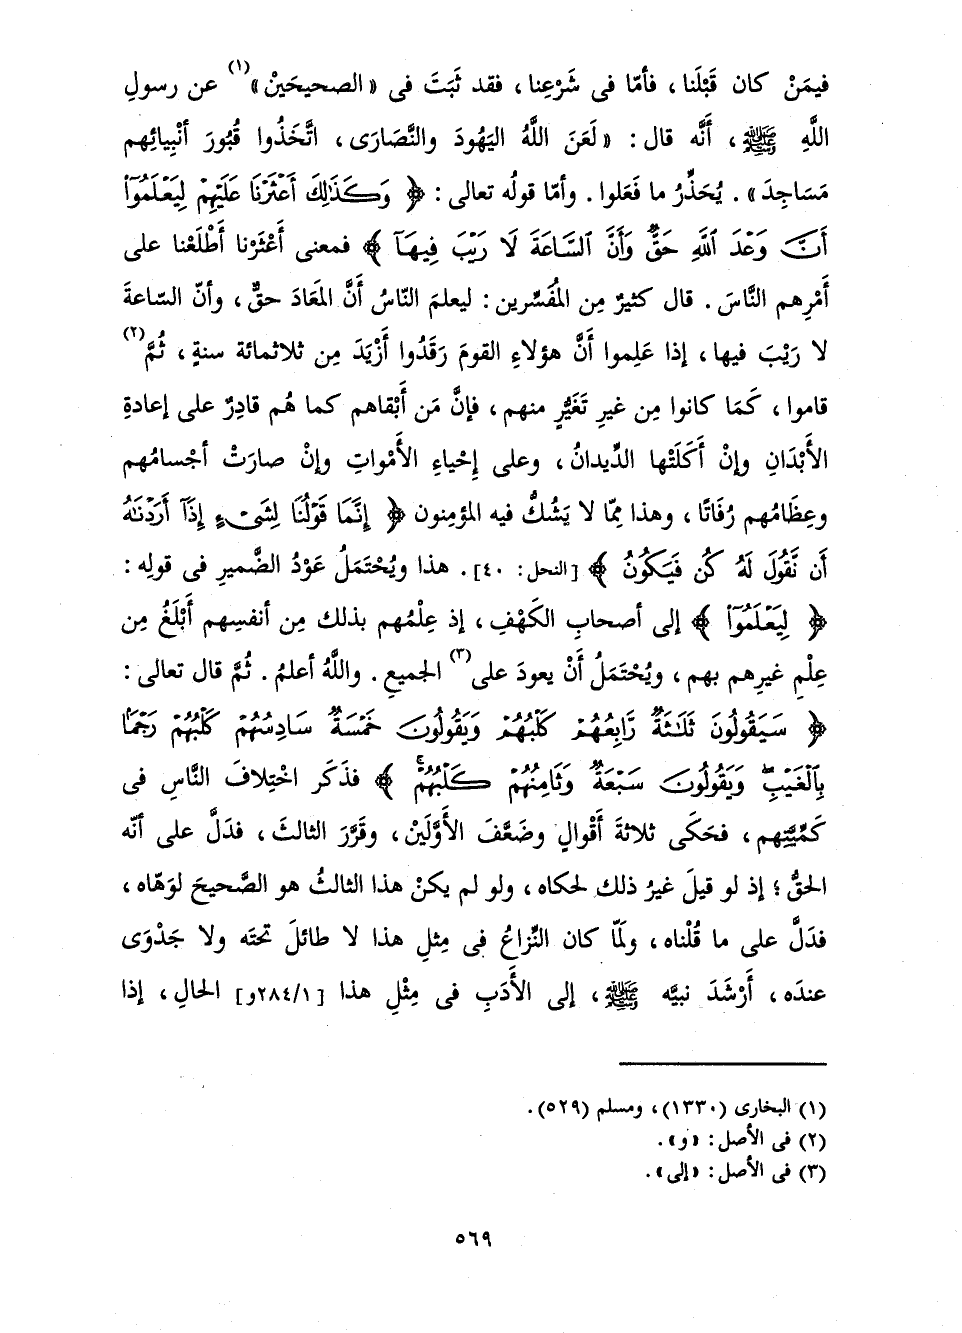 فيمَنْ كان قَبْلَنا ، فأمّا فى شَرْعِنا ، فقد ثَبَتَ فى « الصحيحَيْن »(١) عن رسولِ
اللَّهِ ﷺ ، أنَّه قال : « لَعَنَ اللَّهُ اليَهُودَ والنَّصَارَى ، اتَّخَذُوا قُبُورَ أنْبِيائِهم
مَسَاجِدَ » . يُحَذِّرُ ما فَعَلوا . وأمّا قولُه تعالى : ﴿ وَكَذَٰلِكَ أَعْثَرْنَا عَلَيْهِمْ لِيَعْلَمُوٓا۟
أَنَّ وَعْدَ ٱللَّهِ حَقٌّ وَأَنَّ ٱلسَّاعَةَ لَا رَيْبَ فِيهَآ ﴾ فمعنى أَعْثَرْنا أَطْلَعْنا على
أَمْرِهم النَّاسَ . قال كثيرٌ مِن المُفَسِّرين : ليعلمَ النّاسُ أنَّ المَعَادَ حقٌّ ، وأنّ السّاعةَ
لا رَيْبَ فيها ، إذا عَلِموا أنَّ هؤلاءِ القومَ رَقَدُوا أَزْيَدَ مِن ثلاثمائة سنةٍ ، ثُمَّ(٢)
قاموا ، كَمَا كانوا مِن غيرِ تَغَيُّرٍ منهم ، فإنَّ مَن أَبْقاهم كما هُم قادِرٌ على إعادةِ
الأَبْدَانِ وإنْ أَكَلَتْها الدِّيدانُ ، وعلى إِحْياءِ الأَمْواتِ وإنْ صارَتْ أجْسامُهم
وعِظَامُهم رُفَاتًا ، وهذا مِمّا لا يَشُكُّ فيه المؤمِنون ﴿ إِنَّمَا قَوْلُنَا لِشَىْءٍ إِذَآ أَرَدْنَـٰهُ
أَن نَّقُولَ لَهُۥ كُن فَيَكُونُ ﴾ [ النحل : ٤٠ ] . هذا ويُحْتَمَلُ عَوْدُ الضَّميرِ فى قولِه :
﴿ لِيَعْلَمُوٓا۟ ﴾ إلى أصحابِ الكَهْفِ ، إذ عِلْمُهم بذلك مِن أنفسِهم أَبْلَغُ مِن
عِلْمِ غيرِهم بهم ، ويُحْتَمَلُ أنْ يعودَ على(٣) الجميعِ . واللَّهُ أعلمُ . ثُمَّ قال تعالى :
﴿ سَيَقُولُونَ ثَلَـٰثَةٌ رَّابِعُهُمْ كَلْبُهُمْ وَيَقُولُونَ خَمْسَةٌ سَادِسُهُمْ كَلْبُهُمْ رَجْمًۢا
بِٱلْغَيْبِۖ وَيَقُولُونَ سَبْعَةٌ وَثَامِنُهُمْ كَلْبُهُمْۚ ﴾ فذَكَر اخْتِلافَ النَّاسِ فى
كَمِّيَّتِهم ، فحَكَى ثلاثةَ أَقْوالٍ وضَعَّفَ الأَوَّلَيْن ، وقَرَّرَ الثالثَ ، فدَلَّ على أنَّه
الحقُّ ؛ إذ لو قيلَ غيرُ ذلك لحكاه ، ولو لم يكنْ هذا الثالثُ هو الصَّحيحَ لوَهّاه ،
فدَلَّ على ما قُلْناه ، ولَمّا كان النِّزاعُ فى مِثلِ هذا لا طائلَ تحتَه ولا جَدْوَى
عندَه ، أَرْشَدَ نبيَّه ﷺ ، إلى الأَدَبِ فى مِثْلِ هذا [ ٢٨٤/١و ] الحالِ ، إذا
(١) البخارى (١٣٣٠) ، ومسلم (٥٢٩) .
(٢) فى الأصل : « و » .
(٣) فى الأصل : « إلى » .
٥٦٩